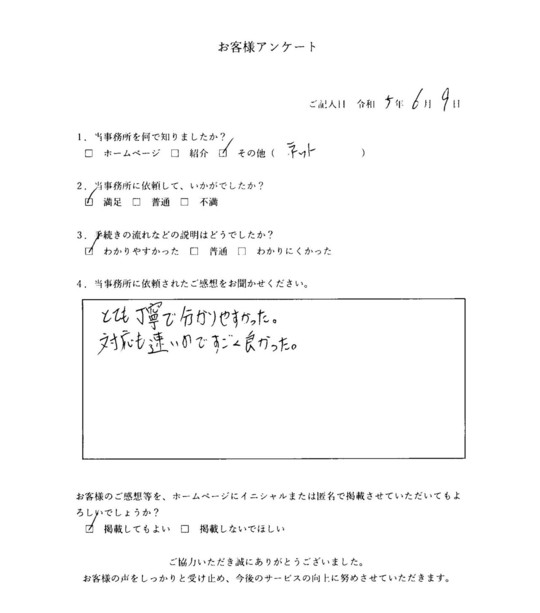 お客様アンケート
ご記入日 令和 5年 6月 9日
1．当事務所を何で知りましたか？
□ ホームページ □ 紹介 ☑ その他（ ネット ）
2．当事務所に依頼して、いかがでしたか？
☑ 満足 □ 普通 □ 不満
3．手続きの流れなどの説明はどうでしたか？
☑ わかりやすかった □ 普通 □ わかりにくかった
4．当事務所に依頼されたご感想をお聞かせください。
とても丁寧で分かりやすかった。
対応も速いのですごく良かった。
お客様のご感想等を、ホームページにイニシャルまたは匿名で掲載させていただいてもよ
ろしいでしょうか？
☑ 掲載してもよい □ 掲載しないでほしい
ご協力いただき誠にありがとうございました。
お客様の声をしっかりと受け止め、今後のサービスの向上に努めさせていただきます。